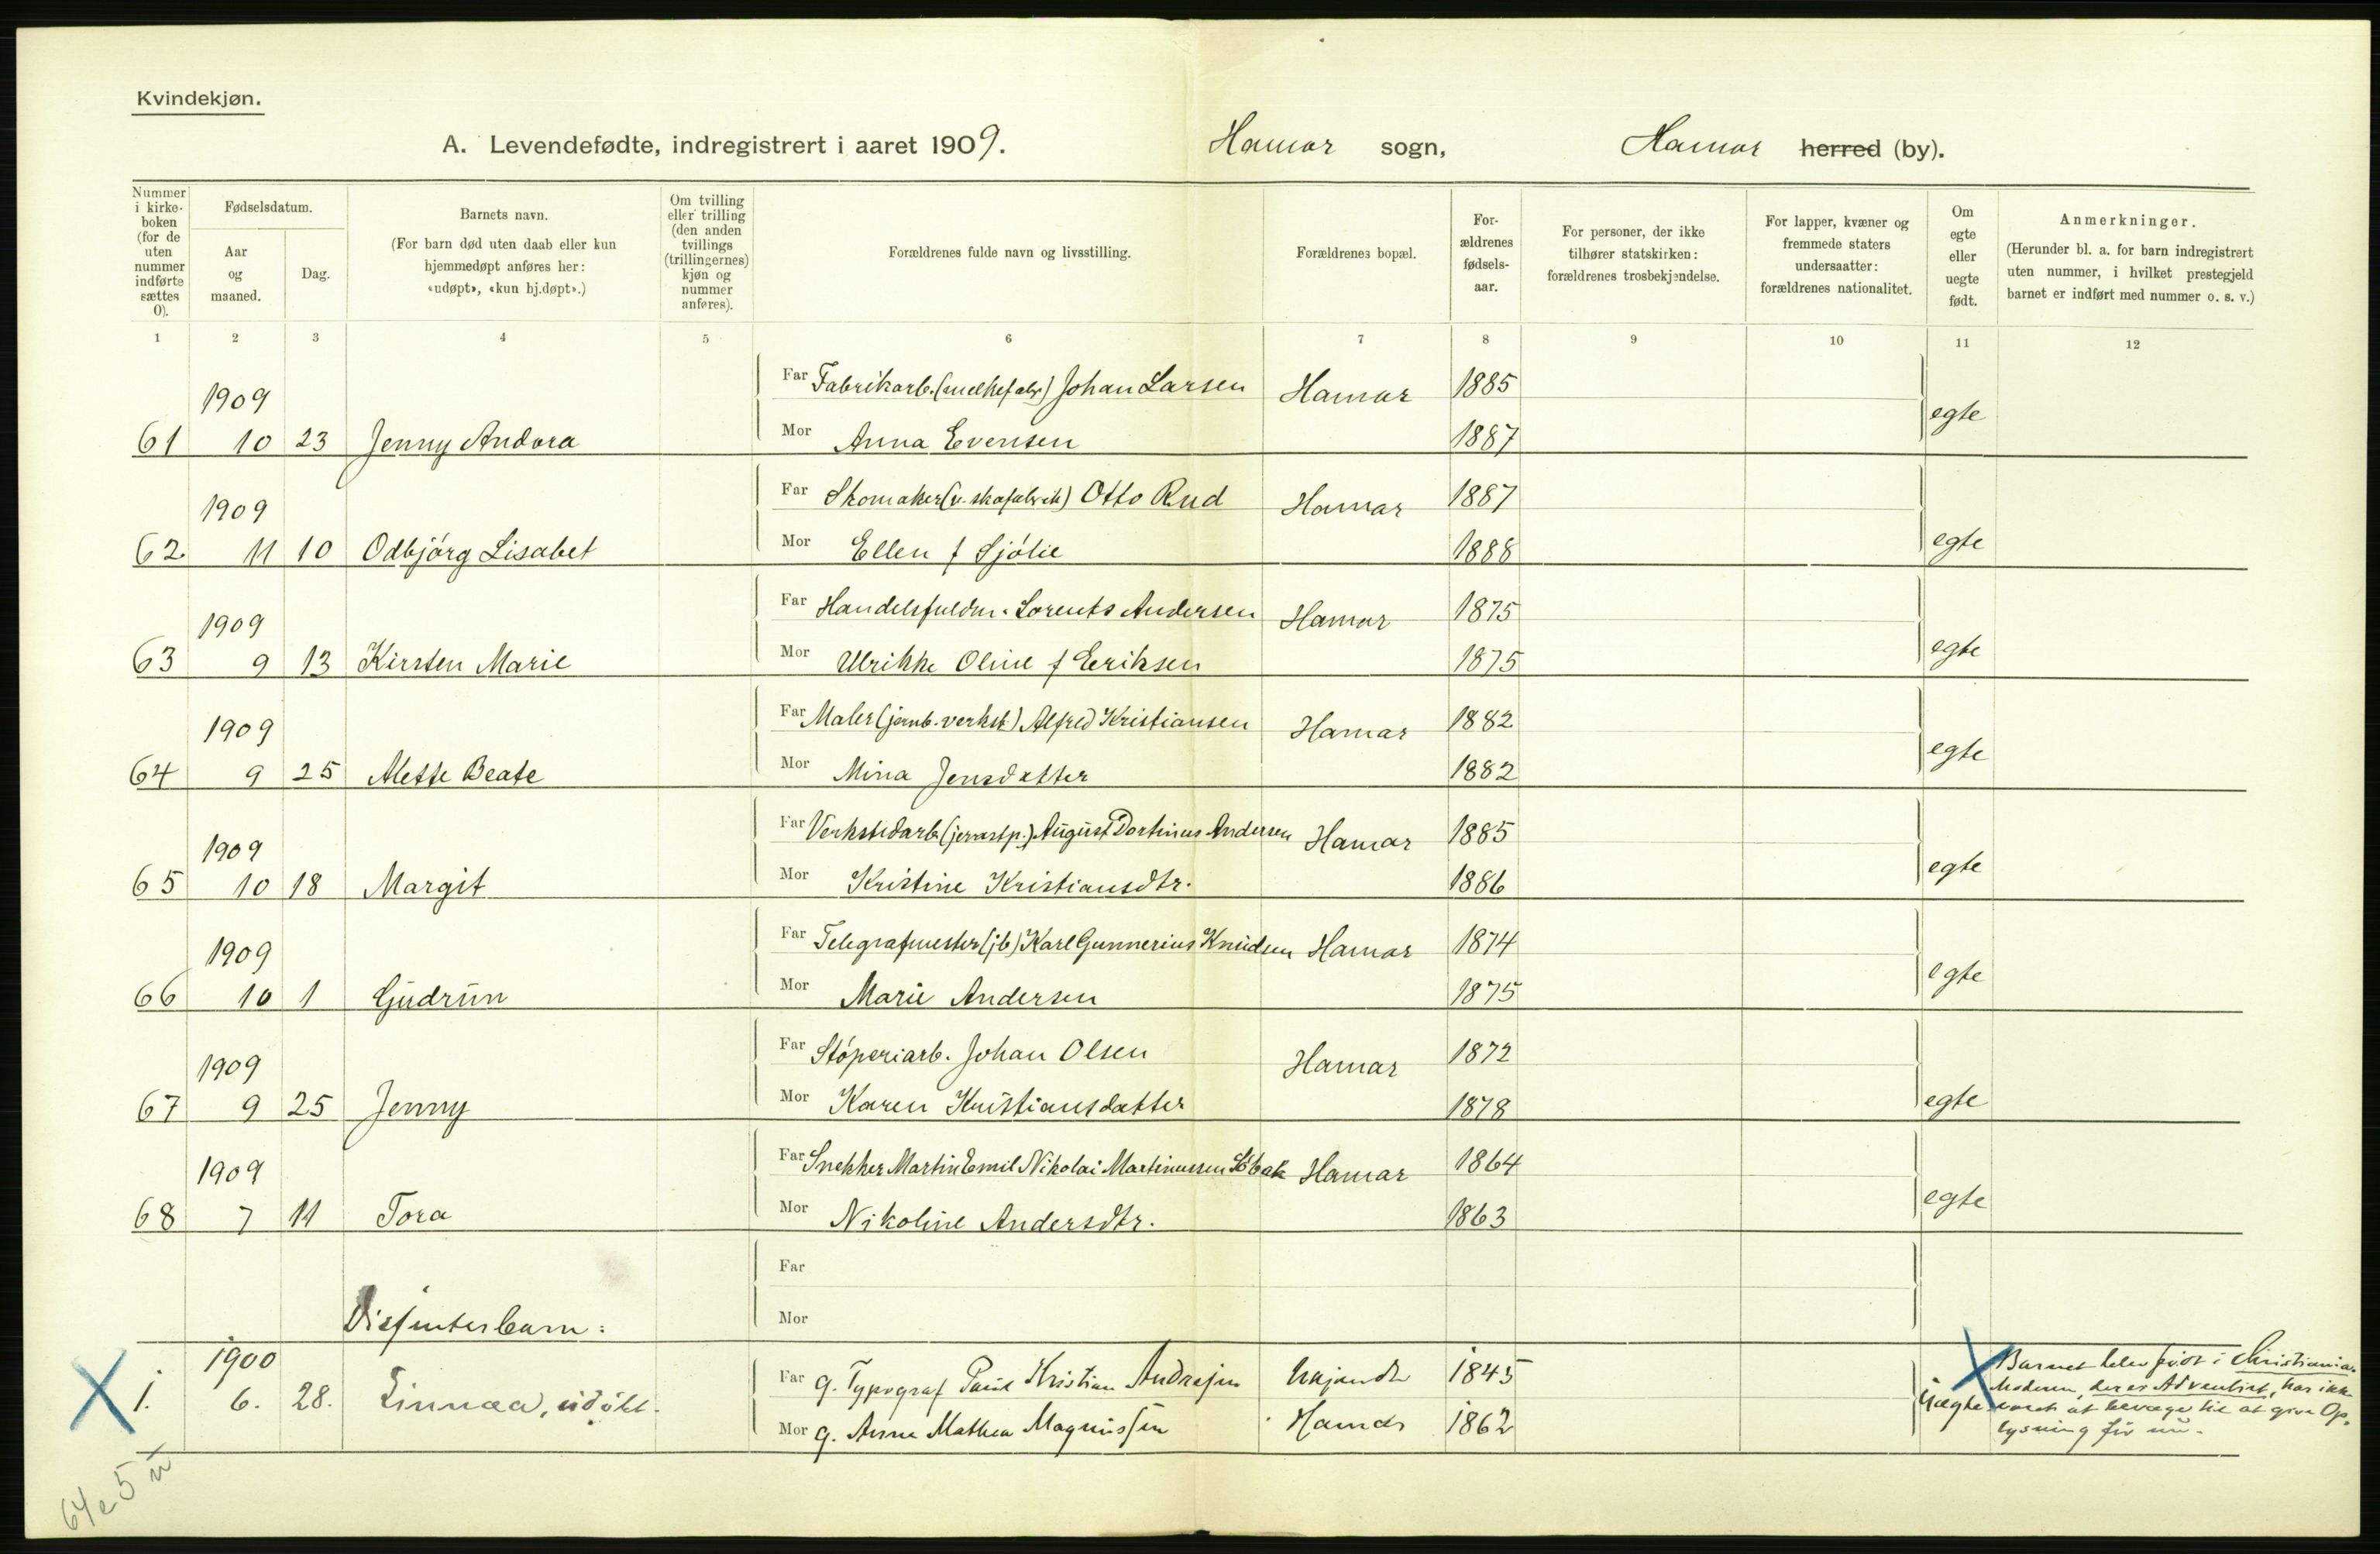 Kvindekjøn.
A. Levendefødte, indregistrert i aaret 1909. Hamar sogn, Hamar herred (by).
Nummer i kirke-boken (for de uten nummer indførte sættes 0).
Fødselsdatum.
Aar og maaned.
Dag.
Barnets navn.
(For barn død uten daab eller kun hjemmedøpt anføres her: «udøpt», «kun hj.døpt».)
Om tvilling eller trilling (den anden tvillings (trillingernes) kjøn og nummer anføres).
Forældrenes fulde navn og livsstilling.
Forældrenes bopæl.
For-ældrenes fødsels-aar.
For personer, der ikke tilhører statskirken: forældrenes trosbekjendelse.
For lapper, kvæner og fremmede staters undersaatter: forældrenes nationalitet.
Om egte eller uegte født.
Anmerkninger.
(Herunder bl. a. for barn indregistrert uten nummer, i hvilket prestegjeld barnet er indført med nummer o. s. v.)
1 2 3 4 5 6 7 8 9 10 11 12
1909 Far Fabrikarb. (melkefabr) Johan Larsen Hamar 1885 egte
61 10 23 Jenny Andora Mor Anna Evensen 1887
1909 Far Skomaker (v. skofabrik) Otto Rud Hamar 1887 egte
62 11 10 Odbjórg Lisabet Mor Ellen f Sjólie 1888
1909 Far Handelsfuldm. Lorents Andersen Hamar 1875 egte
63 9 13 Kirsten Marie Mor Ulrikke Oline f Eeriksen 1875
1909 Far Maler (jernb. verkst) Alfred Kristiansen Hamar 1882 egte
64 9 25 Mette Beate Mor Mina Jensdatter 1882
1909 Far Verkstedarb August Dortinus Andersen Hamar 1885 egte
65 10 18 Margit Mor Kristine Kristiansdtr. 1886
1909 Far Telegrafmester (jb) Karl Gunnerius Knudsen Hamar 1874 egte
66 10 1 Gudrun Mor Marie Andersen 1875
1909 Far Stóperiarb. Johan Olsen Hamar 1872 egte
67 9 25 Jenny Mor Karen Kristiansdatter 1878
1909 Far Snekker Martin Emil Nikolai Martinussen Hamar 1864 egte
68 7 11 Tora Mor Nikoline Andersdtr. 1863
Far
Disfenterbarn: Mor
1900 Far g. Typograf Paul Kristian Andresen Ukjendt 1845 Barnet blev født i Christiania.
X 1. 6. 28. Linnaa, udöbt. X Moderen, der er Adventist, har ikke
Mor g. Anne Mathea Magnussen Hamar 1862 Uægte været at bevæge til at give Op-
lysning før nu.
64 e 5 u